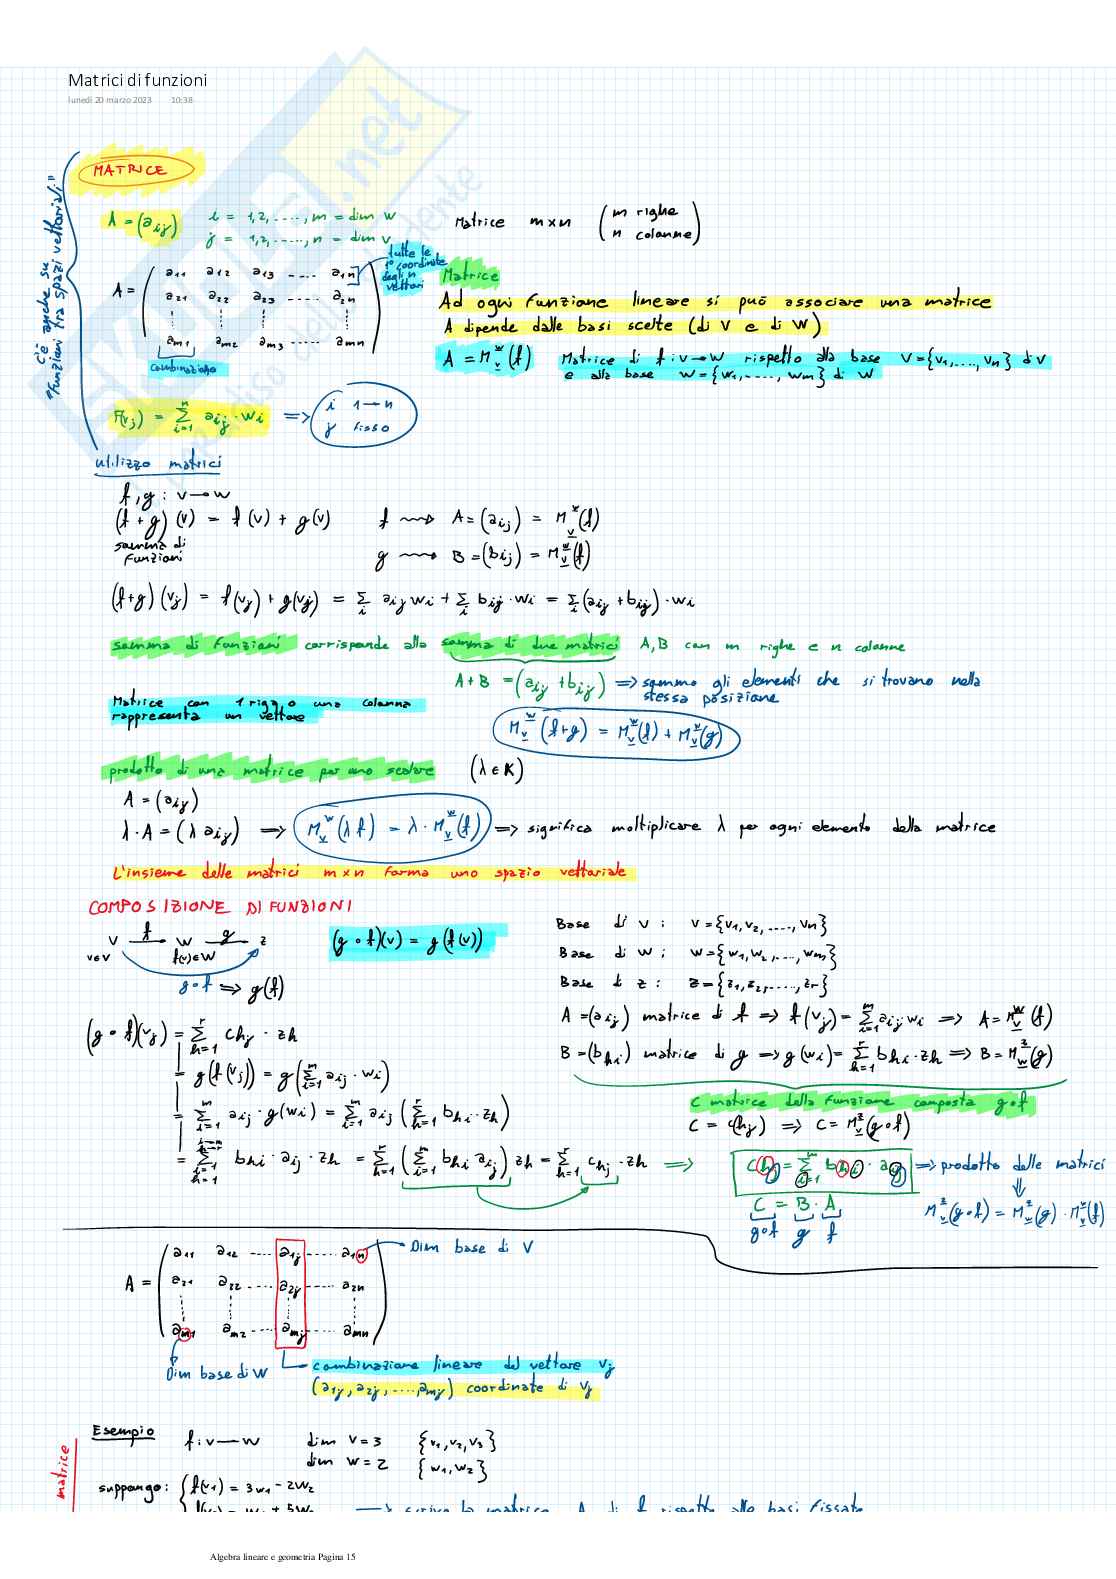 Matrici di funzioni
lunedì 20 marzo 2023 10:38
MATRICE
c'è anche su "funzioni tra spazi vettoriali"
A = (aij) i = 1,2, ....., m = dim W
j = 1,2, ....., n = dim V
Matrice m×n (m righe n colonne)
A = ( a11 a12 a13 ..... a1n
a21 a22 a23 ..... a2n
am1 am2 am3 ..... amn )
tutte le 1° coordinate degli n vettori
combinazione
Matrice
Ad ogni funzione lineare si può associare una matrice
A dipende dalle basi scelte (di V e di W)
A = M_V^W(f) Matrice di f: V→W rispetto alla base V = {v1, ...., vn} di V
e alla base W = {w1, ...., wm} di W
F(vj) = Σ_{i=1}^{n} aij · wi ⟹ i 1→n
j fisso
utilizzo matrici
f, g : V→W
(f + g)(v) = f(v) + g(v) f ⇝ A = (aij) = M_V^W(f)
somma di funzioni g ⇝ B = (bij) = M_V^W(g)
(f+g)(vj) = f(vj) + g(vj) = Σ_i aij wi + Σ_i bij · wi = Σ_i (aij + bij) · wi
somma di funzioni corrisponde alla somma di due matrici A, B con m righe e n colonne
A+B = (aij + bij) ⟹ sommo gli elementi che si trovano nella stessa posizione
Matrice con 1 riga o una colonna
rappresenta un vettore
M_V^W(f+g) = M_V^W(f) + M_V^W(g)
prodotto di una matrice per uno scalare (λ ∈ K)
A = (aij)
λ·A = (λ aij) ⟹ M_V^W(λ f) = λ · M_V^W(f) ⟹ significa moltiplicare λ per ogni elemento della matrice
L'insieme delle matrici m×n forma uno spazio vettoriale
COMPOSIZIONE DI FUNZIONI
V —f— W —g— Z
v∈V f(v)∈W
g∘f ⟹ g(f)
(g ∘ f)(v) = g(f(v))
Base di V : V = {v1, v2, ...., vn}
Base di W : W = {w1, w2, ...., wm}
Base di Z : Z = {z1, z2, ...., zr}
A = (aij) matrice di f ⟹ f(vj) = Σ_{i=1}^{m} aij wi ⟹ A = M_V^W(f)
B = (bhi) matrice di g ⟹ g(wi) = Σ_{h=1}^{r} bhi · zh ⟹ B = M_W^Z(g)
(g ∘ f)(vj) = Σ_{h=1}^{r} chj · zh
= g(f(vj)) = g(Σ_{i=1}^{m} aij · wi)
= Σ_{i=1}^{m} aij · g(wi) = Σ_{i=1}^{m} aij (Σ_{h=1}^{r} bhi · zh)
= Σ bhi · aij · zh = Σ_{h=1}^{r} (Σ_{i=1}^{m} bhi aij) zh = Σ_{h=1}^{r} chj · zh ⟹
C matrice della funzione composta g∘f
C = (chj) ⟹ C = M_V^Z(g∘f)
chj = Σ_{i=1}^{m} bhi · aij ⟹ prodotto delle matrici
C = B · A
g∘f g f
M_V^Z(g∘f) = M_W^Z(g) · M_V^W(f)
A = ( a11 a12 .... a1j .... a1n
a21 a22 .... a2j .... a2n
am1 am2 .... amj .... amn )
Dim base di V
Dim base di W
combinazione lineare del vettore vj
(a1j, a2j, ...., amj) coordinate di vj
Esempio
f: V — W dim V = 3 {v1, v2, v3}
dim W = 2 {w1, w2}
matrice
suppongo: f(v1) = 3w1 − 2w2
→ scrivo la matrice A di f rispetto alle basi fissate
Algebra lineare e geometria Pagina 15